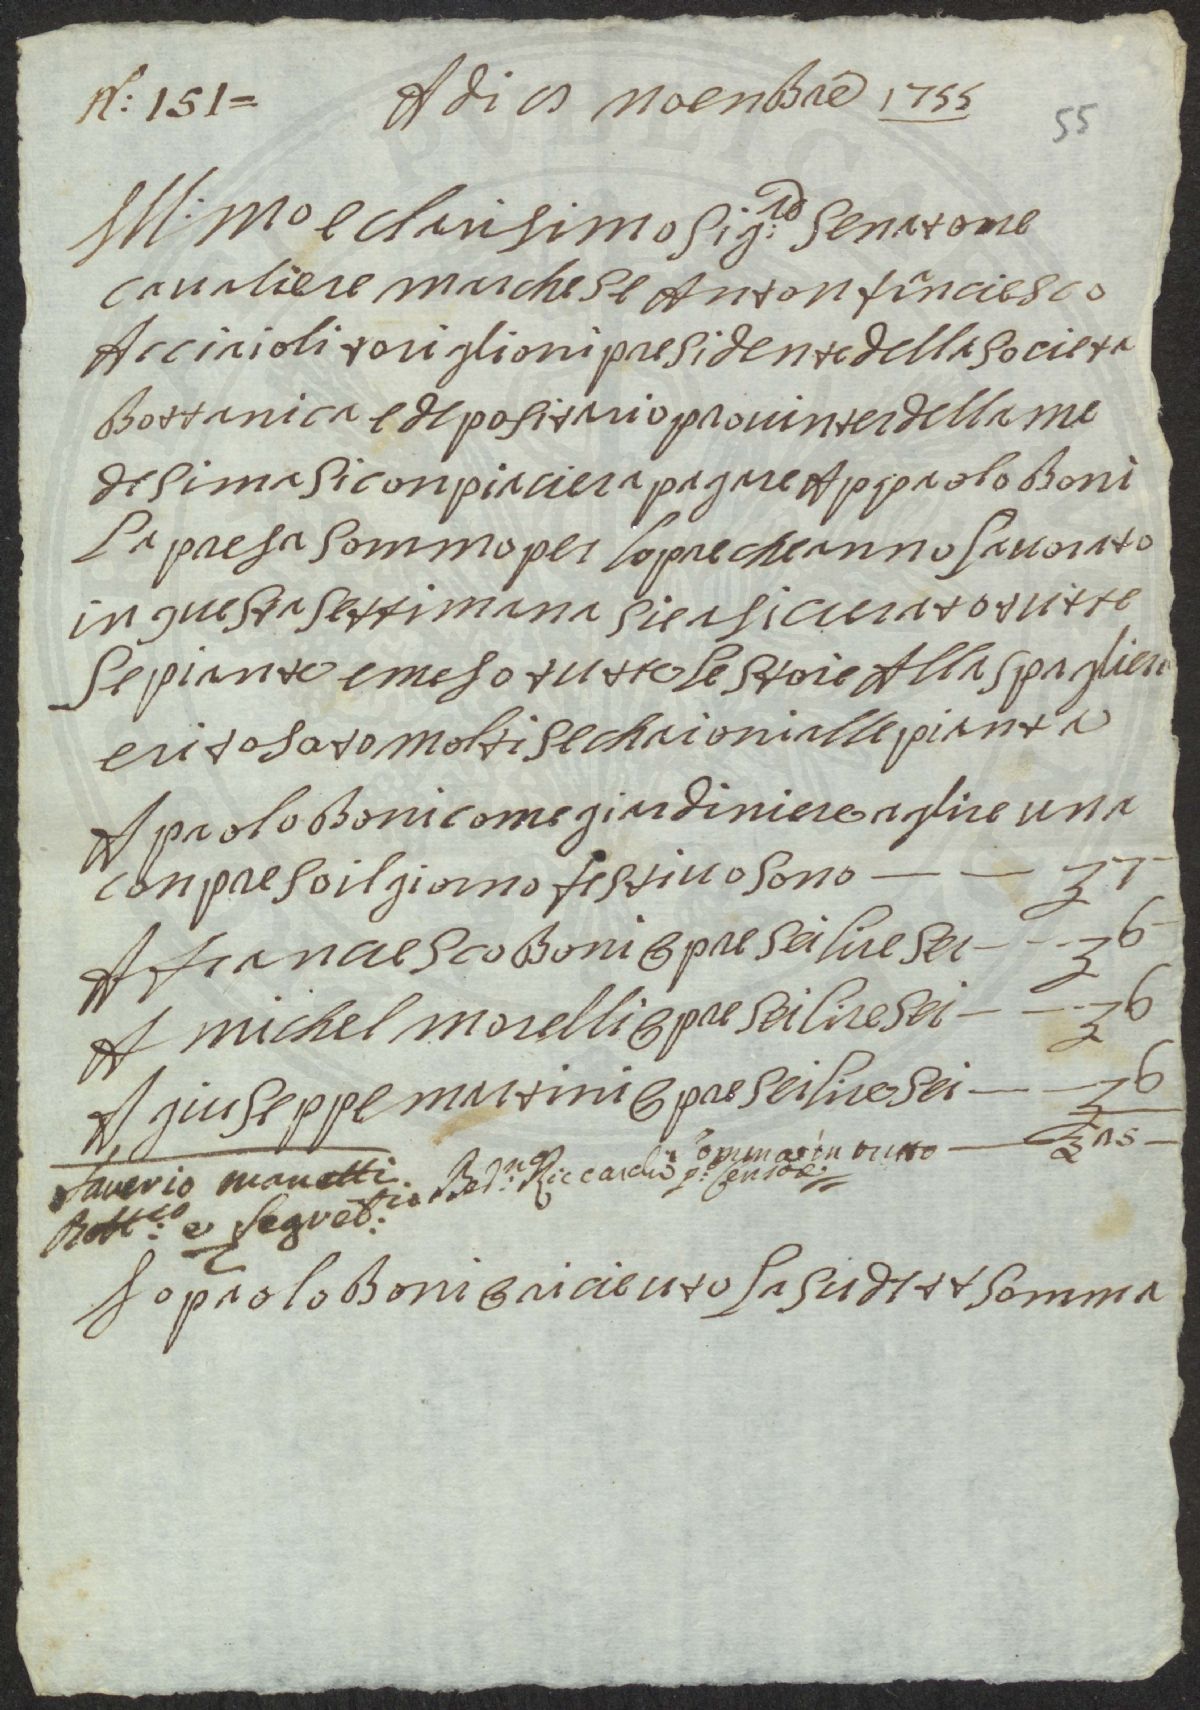 N.: 151=
Adi noenbre 1755
55
Ill:mo e clarisimo Sig:re Senatore
cavaliere marchese Anton franciesco
Acciaioli toriglioni presidente della societa
Bottanica e depositario provinter della me
desima si conpiaciera pagare A p paolo Boni
La presa sommo per lopre che anno lavorato
in questa settimana sie asicurato tutte
le piante e meso tutte le stoie Alla spagliera
e ritosato molti sechaioni alle pianta
A paolo Boni come giardiniere a glire una
conpreso il giorno festivo sono — — 7
A franciesco Boni pre sei lire sei — — 6
A michel morelli pre sei lire sei — — 6
A giuseppe martini pre sei lire sei — — 6
somma in tutto — 25 —
Saverio Manetti
Bott:co e Segret:rio
Bed:no Riccardi p: Censore
Io paolo Boni o riceuto La sudett somma